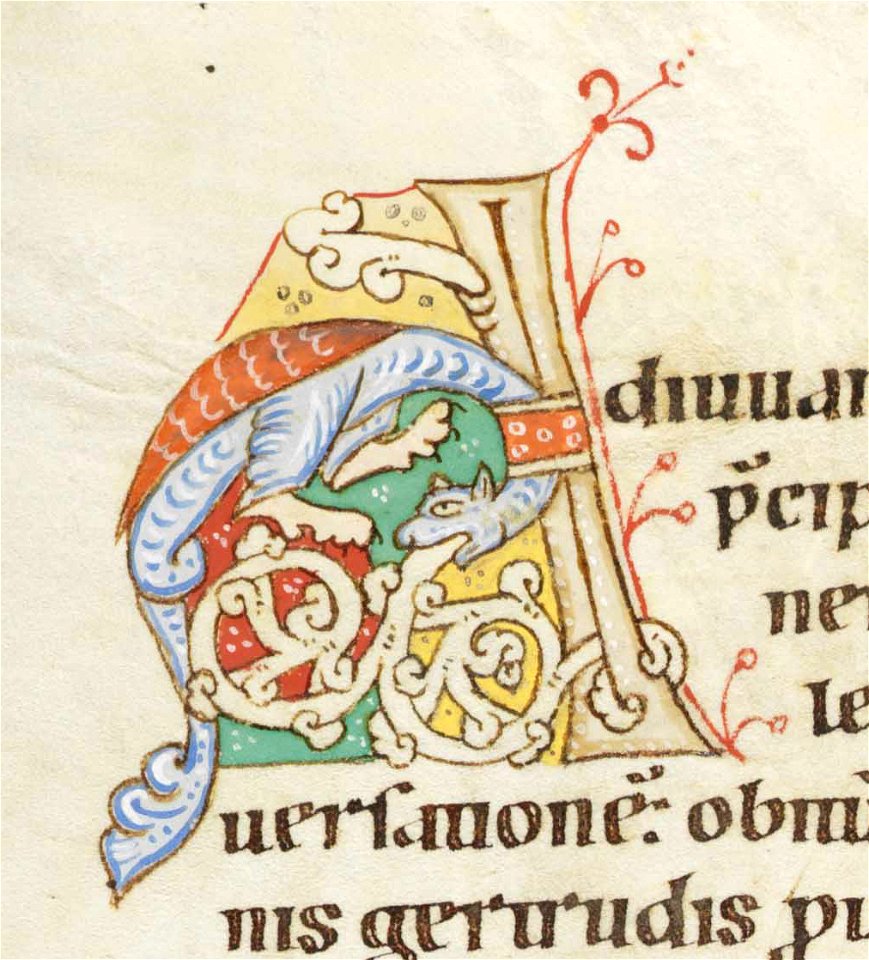 Adiuuan
p̄cip
ner
le
uersationē: obmu
nis gertrudis pu